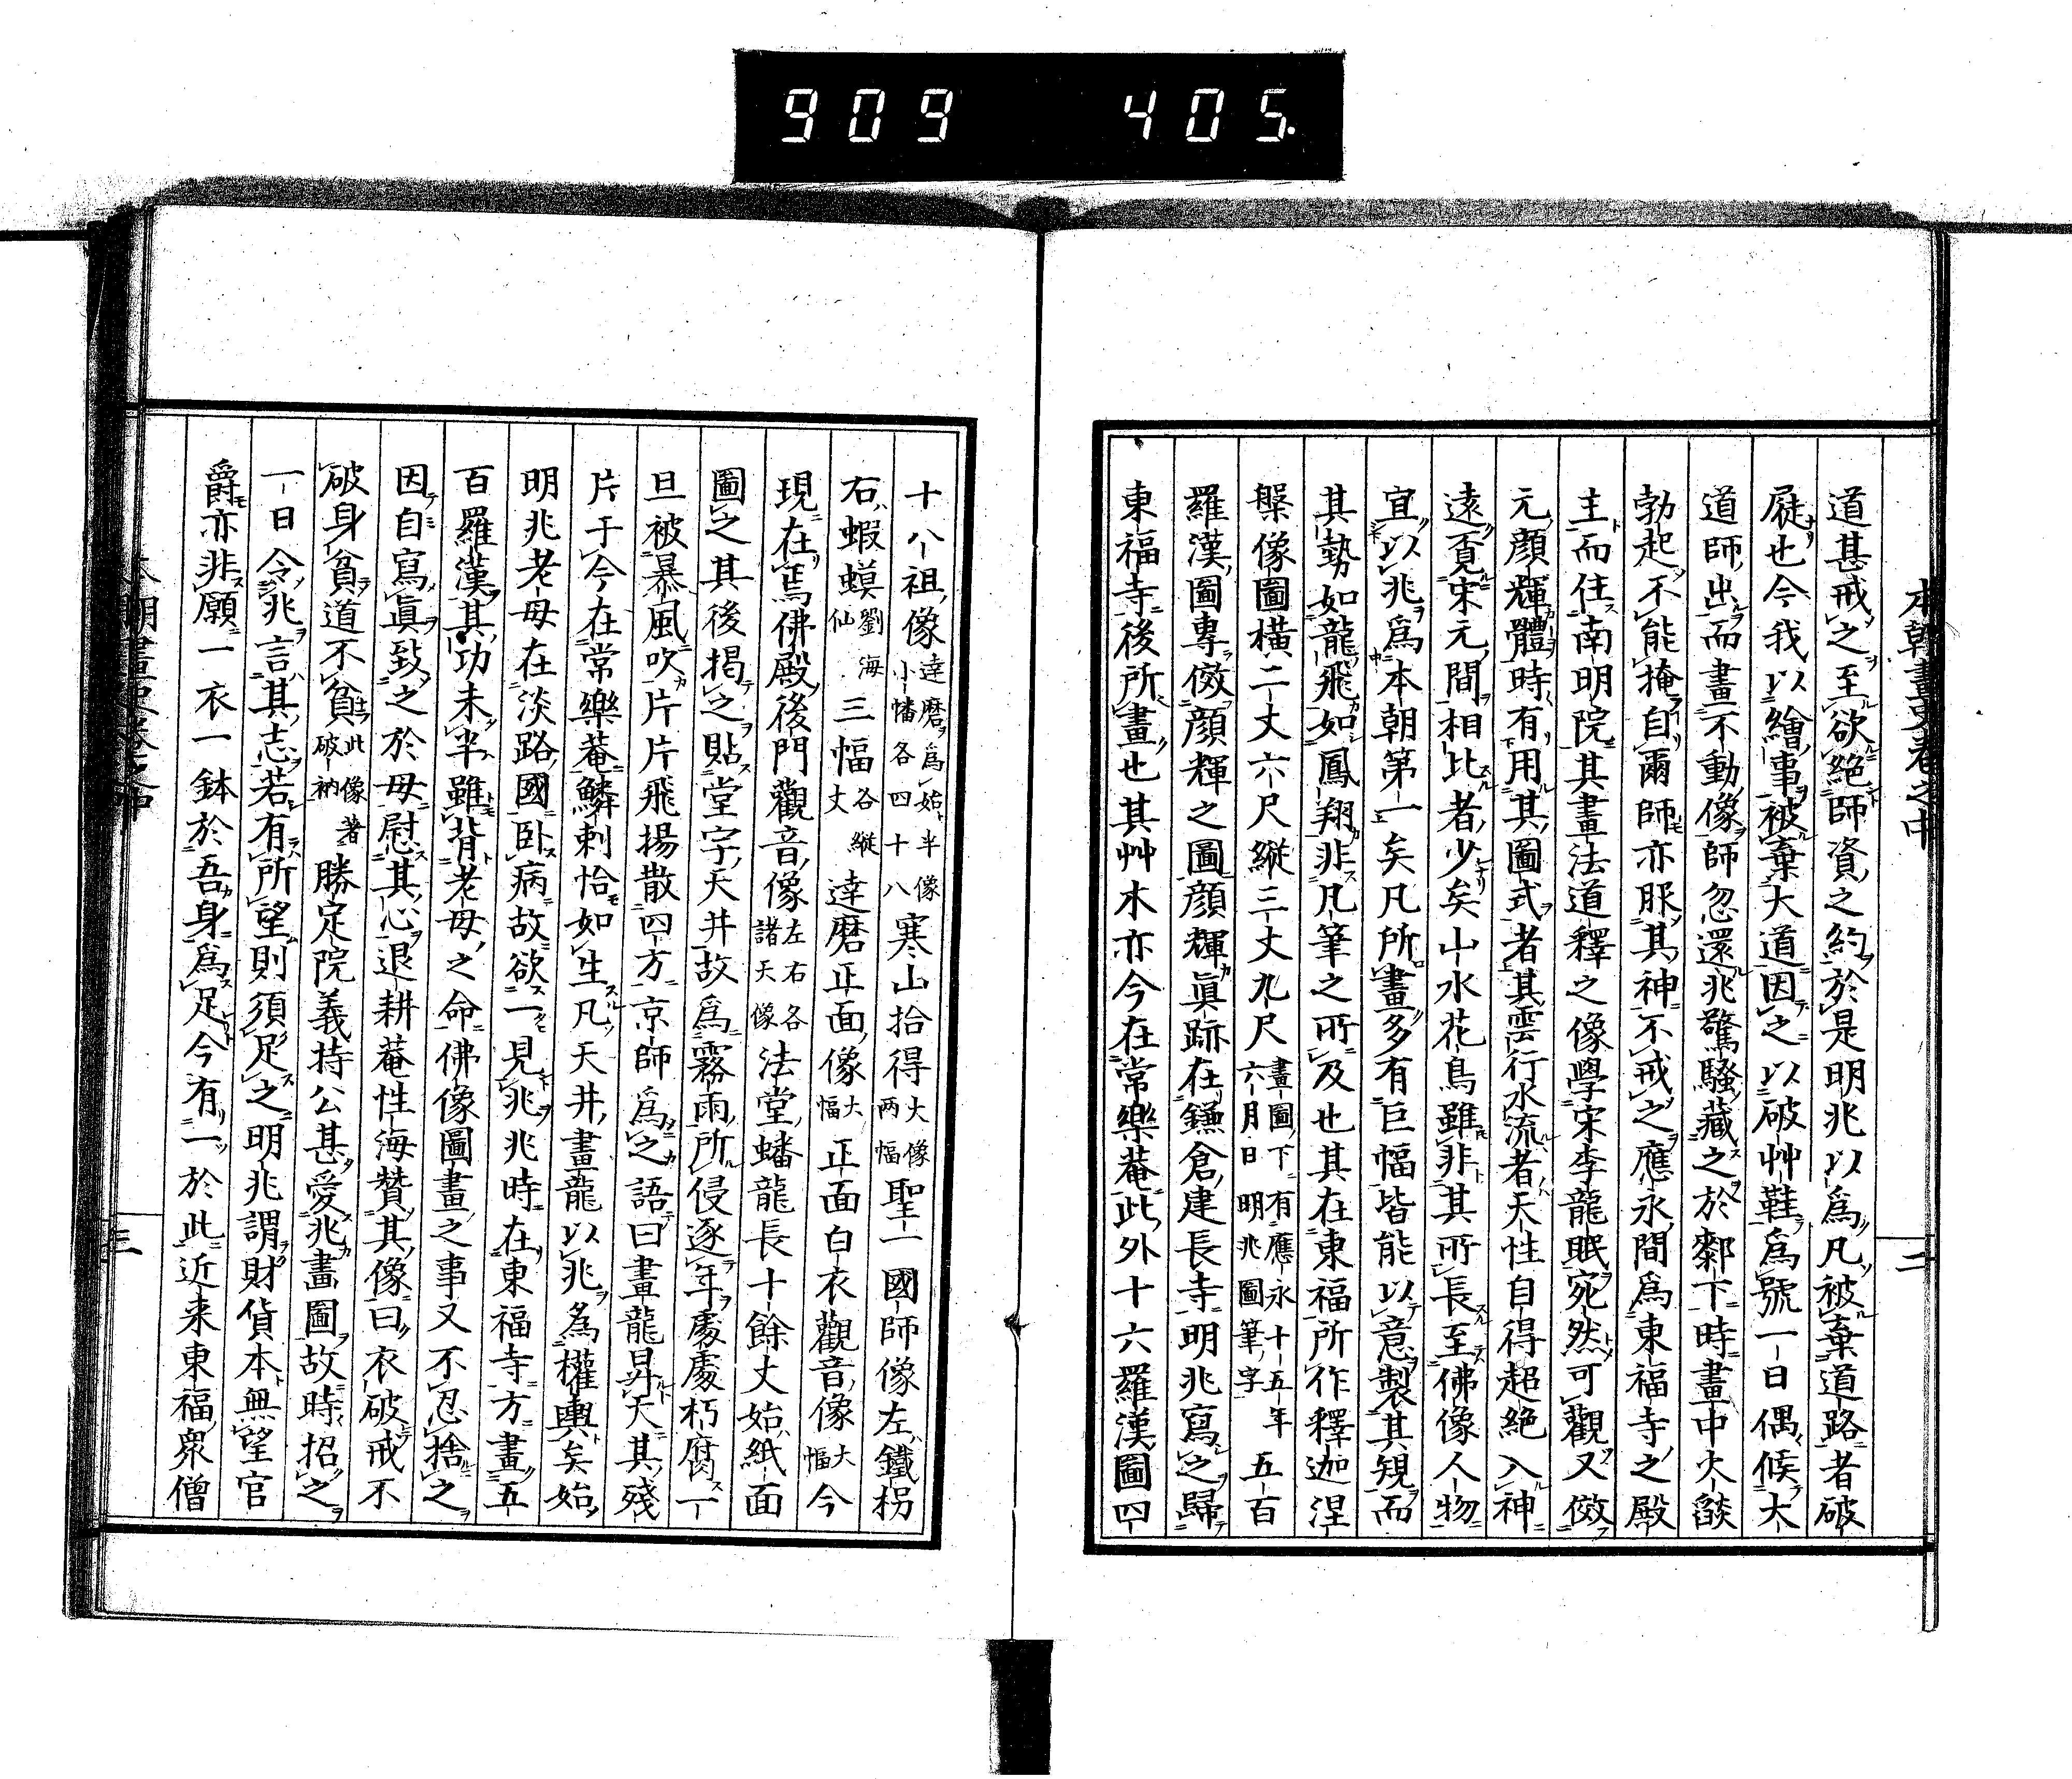 909 405.
本朝畫史卷之中 二
道甚戒之至欲絕師資之約於是明兆以爲凡被棄道路者破
屣也今我以繪事被棄大道因之以破艸鞋爲號一日偶候大
道師出而畫不動像師忽還兆驚騷藏之於鄴下時畫中火燄
勃起不能掩自爾師亦服其神不戒之應永間爲東福寺之殿
主而住南明院其畫法道釋之像學宋李龍眠宛然可觀又倣
元顏輝體時有用其圖式者其雲行水流者天性自得超絕入神
遠覓宋元間相比者少矣山水花鳥雖非其所長至佛像人物
宜以兆爲本朝第一矣凡所畫多有巨幅皆能以意製其規而
其勢如龍飛如鳳翔非凡筆之所及也其在東福所作釋迦涅
槃像圖橫二丈六尺縱三丈九尺畫圖下有應永十五年六月日明兆圖筆字五百
羅漢圖專倣顏輝之圖顏輝眞跡在鎌倉建長寺明兆寫之歸
東福寺後所畫也其艸木亦今在常樂菴此外十六羅漢圖四
十八祖像達磨爲始半像小幡各四十八寒山拾得大像兩幅聖一國師像左鐵拐
右蝦蟆劉海仙三幅各縱丈達磨正面像大幅正面白衣觀音像大幅今
現在焉佛殿後門觀音像左右各諸天像法堂蟠龍長十餘丈始紙面
圖之其後揭之貼堂宇天井故爲霧雨所侵逐年處處朽腐一
旦被暴風吹片片飛揚散四方京師爲之語曰畫龍昇天其殘
片于今在常樂菴鱗刺恰如生凡天井畫龍以兆爲權輿矣始
明兆老母在淡路國臥病故欲一見兆兆時在東福寺方畫五
百羅漢其功未半雖背老母之命佛像圖畫之事又不忍捨之
因自寫眞致之於母慰其心退耕菴性海贊其像曰衣破戒不
破身貧道不貧此像著破衲勝定院義持公甚愛兆畫圖故時招之
一日令兆言其志若有所望則須足之明兆謂財貨本無望官
爵亦非願一衣一鉢於吾身爲足今有一於此近來東福衆僧
本朝畫史卷之中 三